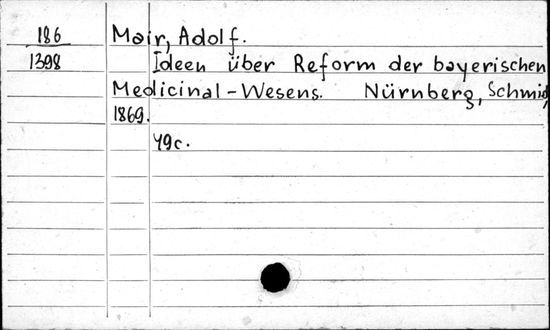 186
1398
Mair, Adolf.
Ideen über Reform der bayerischen
Medicinal-Wesens. Nürnberg, Schmid,
1869.
49c.